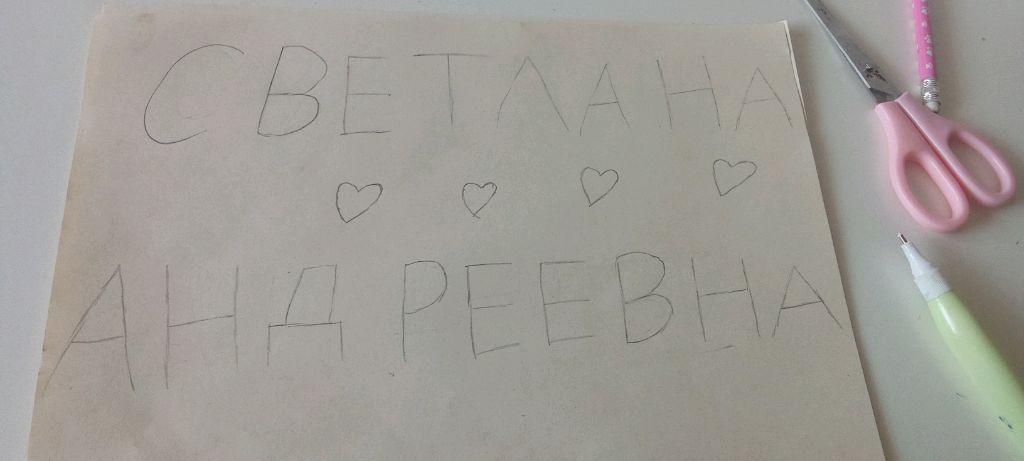 СВЕТЛАНА
АНДРЕЕВНА